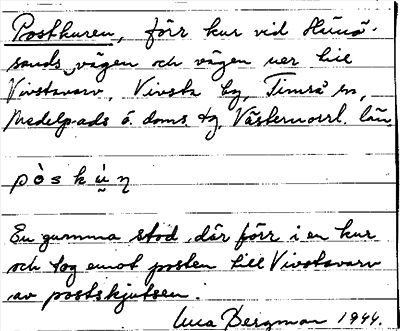 Postkuren, förr kur vid Härnö-
sands vägen och vägen ner till
Vivstavarv, Vivsta by, Timrå sn,
Medelpads ö. doms. tg, Västernorrl. län.
pò s k ù̯ ṇ
En gumma stod där förr i en kur
och tog emot posten till Vivstavarv
av postskjutsen.
Bergman 1944.